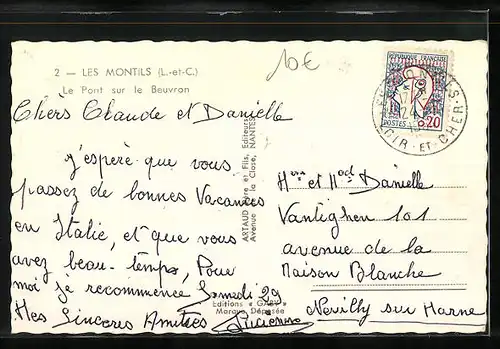 2 — LES MONTILS (L.-et-C.)
Le Pont sur le Beuvron
10€
Chers Claude et Danielle
j'espère que vous
passez de bonnes Vacances
en Italie, et que vous
avez beau-temps, Pour
moi je recommence Samedi 29
Mes Sincères Amitiés
Lucienne
ARTAUD Père et Fils, Editeurs
Avenue de la Close, NANTES
Editions « GABY »
Marque Déposée
REPUBLIQUE FRANÇAISE
POSTES 0,20
LOIR-ET-CHER
et Danielle
Vantighen 101
avenue de la
Maison Blanche
Neuilly sur Marne